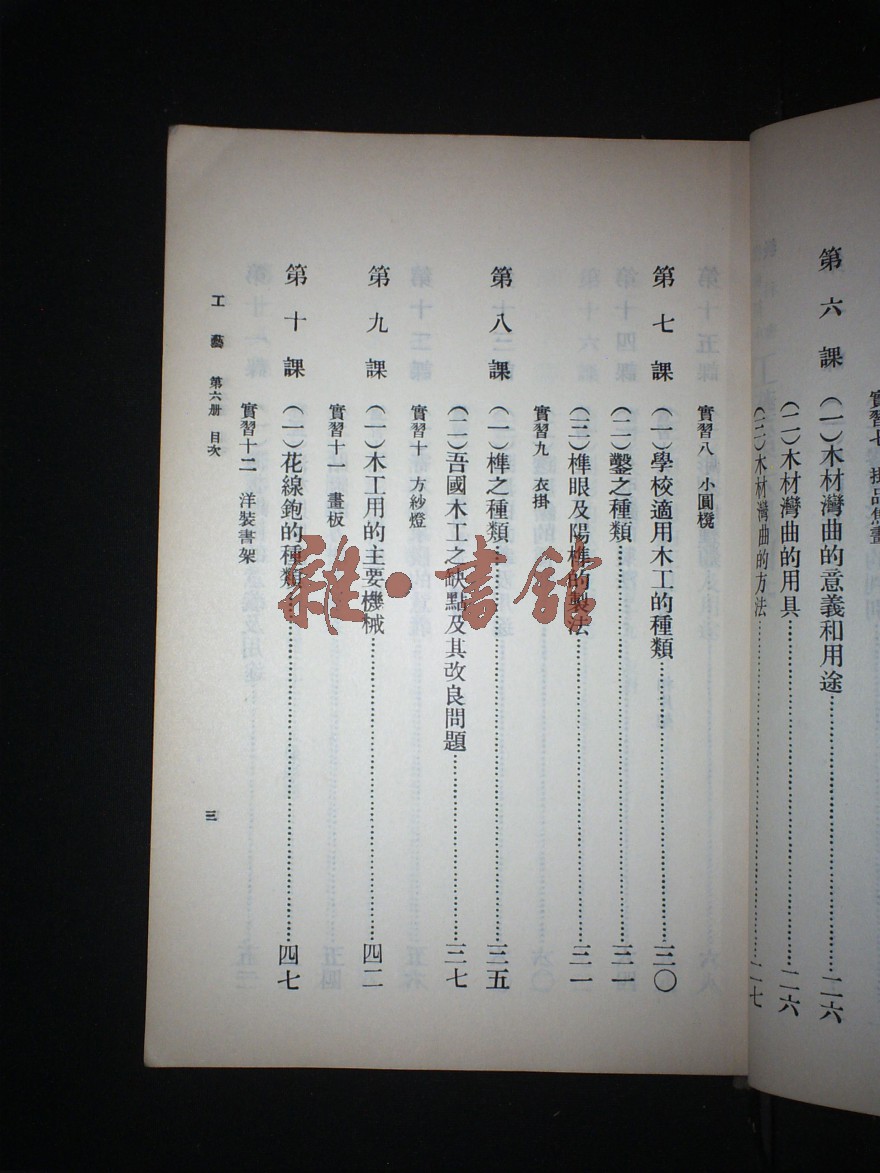 實習七 掛品焦畫
第六課 (一)木材灣曲的意義和用途……二六
(二)木材灣曲的用具……二六
(三)木材灣曲的方法……二七
實習八 小圓櫈
第七課 (一)學校適用木工的種類……三〇
(二)鑿之種類……三一
(三)榫眼及陽榫的製法……三一
實習九 衣掛
第八課 (一)榫之種類……三五
(二)吾國木工之缺點及其改良問題……三七
實習十 方紗燈
第九課 (一)木工用的主要機械……四二
實習十一 畫板
第十課 (一)花線鉋的種類……四七
實習十二 洋裝書架
工藝 第六册 目次 三
雜·書館